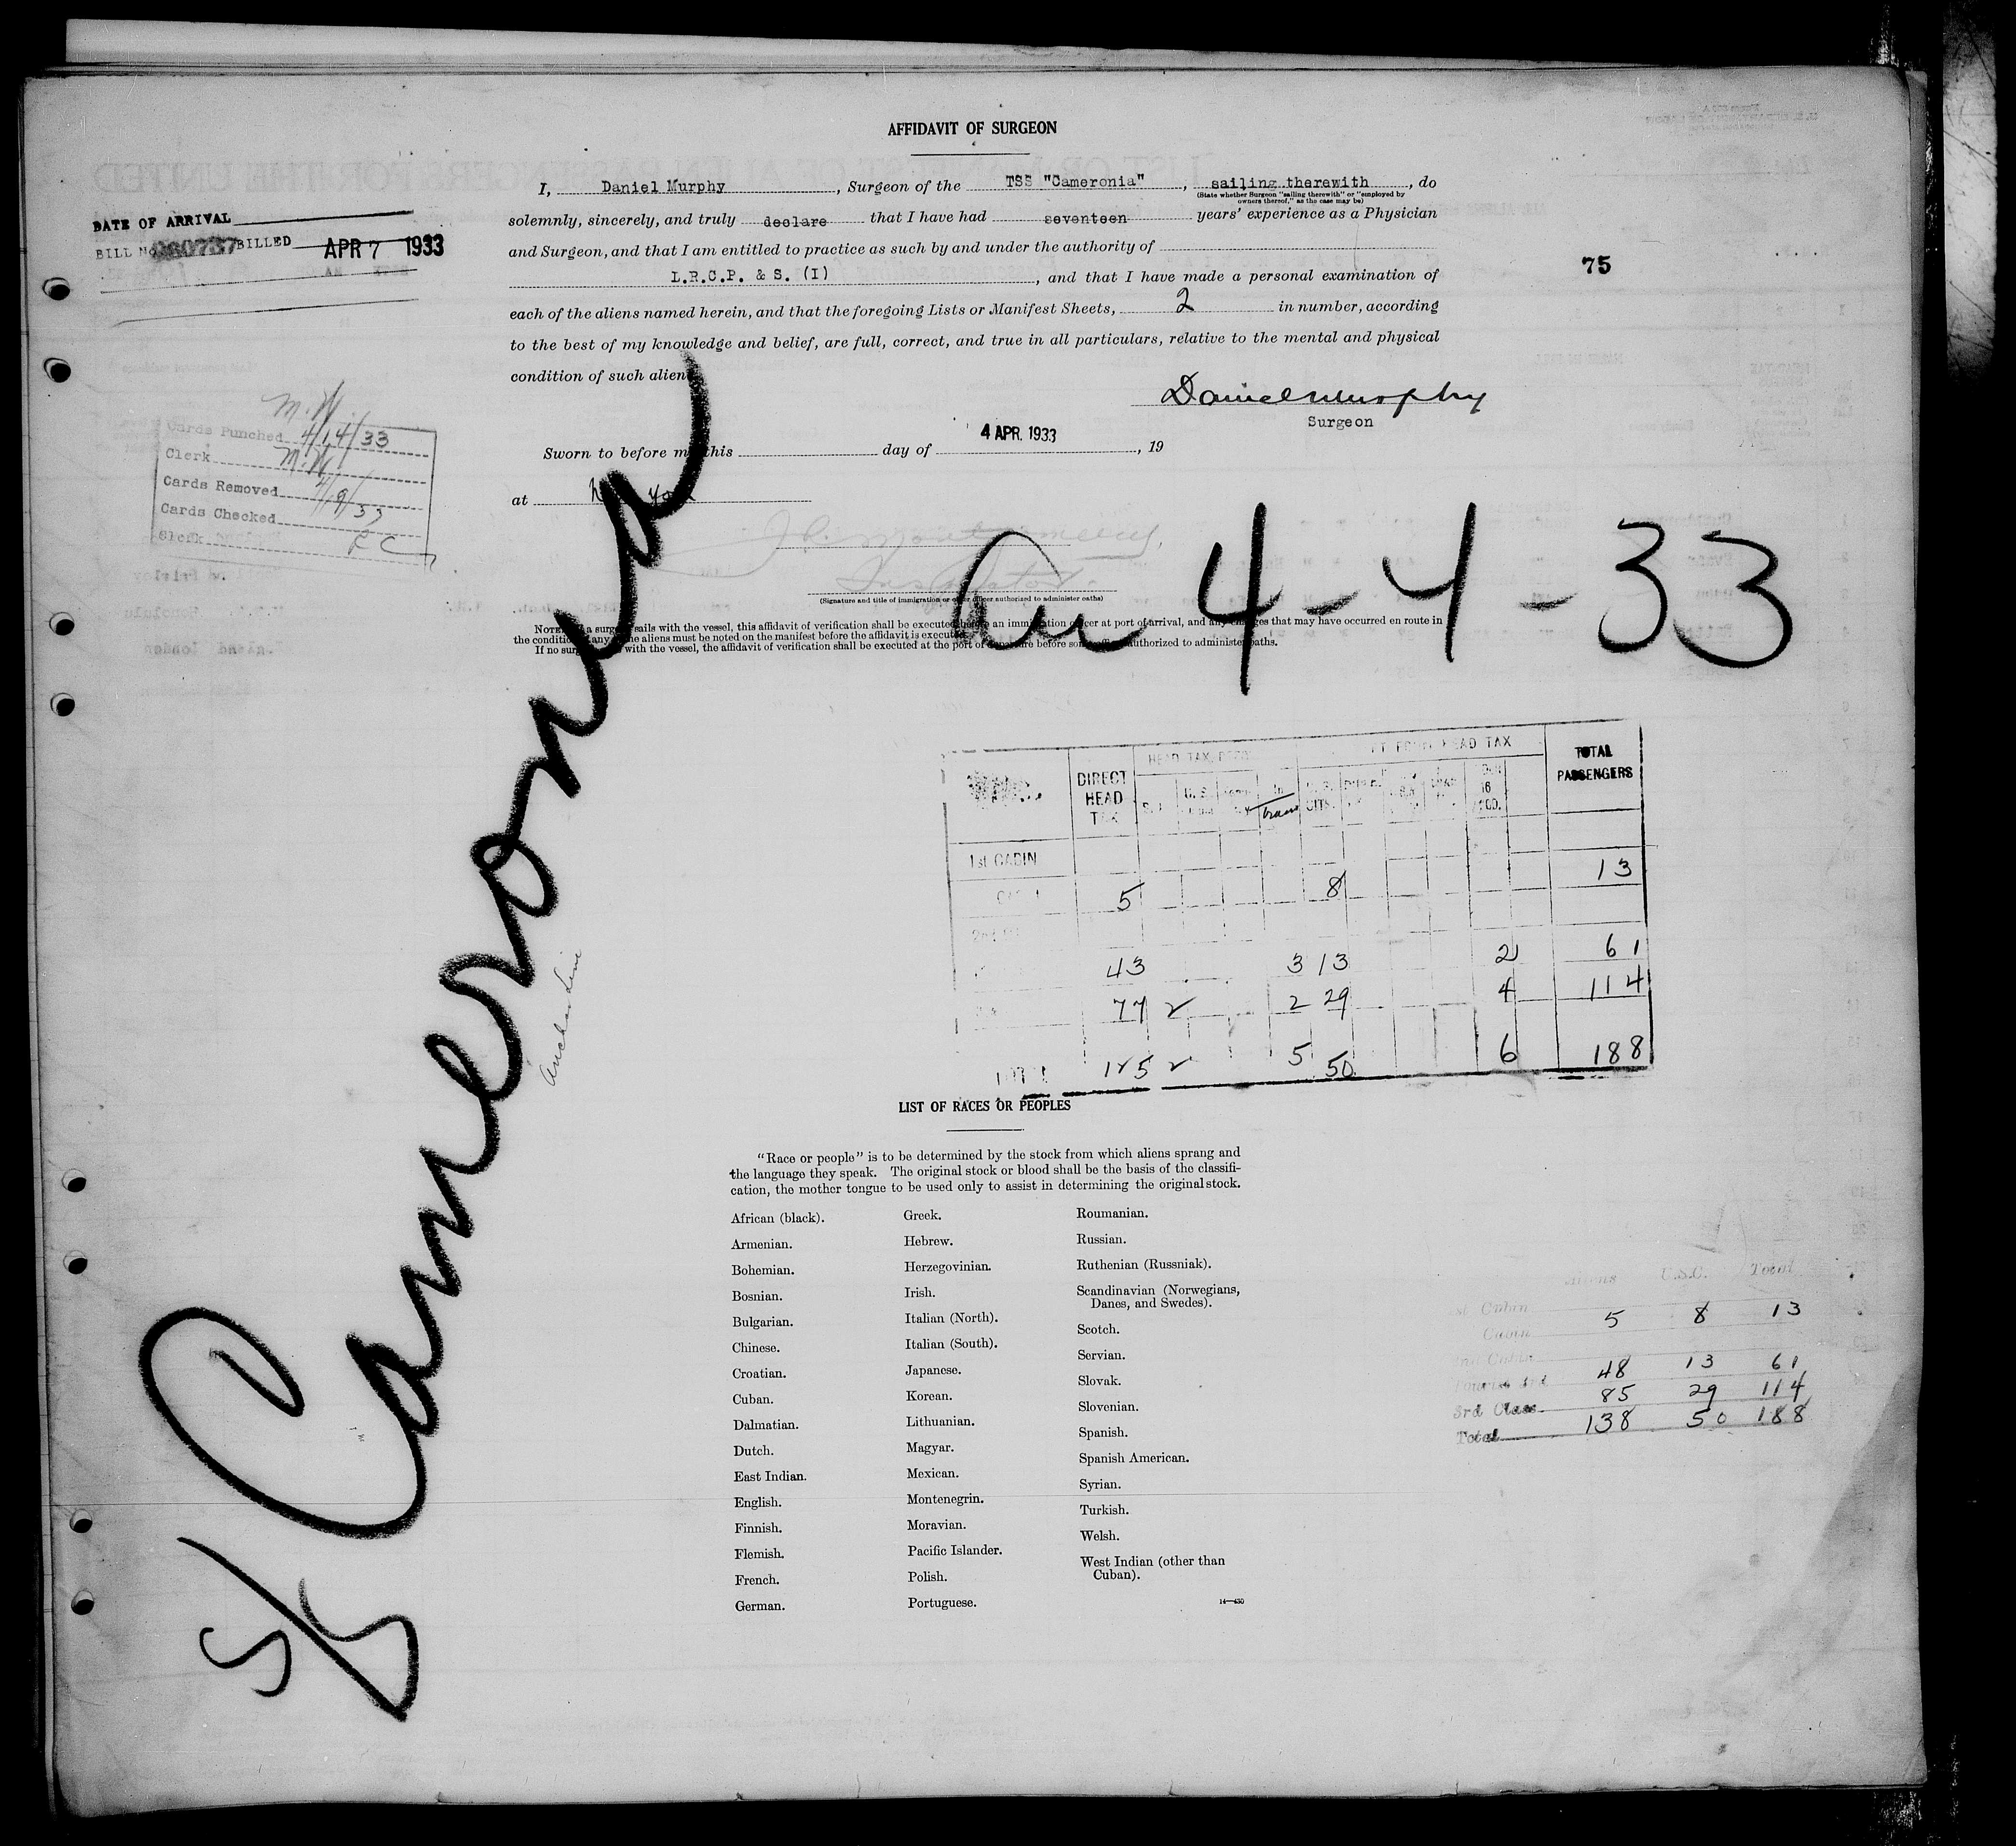 AFFIDAVIT OF SURGEON
I, Daniel Murphy, Surgeon of the TSS "Cameronia", sailing therewith, do
(State whether Surgeon "sailing therewith" or "employed by
owners thereof," as the case may be)
solemnly, sincerely, and truly declare that I have had seventeen years' experience as a Physician
and Surgeon, and that I am entitled to practice as such by and under the authority of
L.R.C.P. & S. (I), and that I have made a personal examination of
each of the aliens named herein, and that the foregoing Lists or Manifest Sheets, 2 in number, according
to the best of my knowledge and belief, are full, correct, and true in all particulars, relative to the mental and physical
condition of such alien
Daniel Murphy
Surgeon
4 APR. 1933
Sworn to before me this day of , 19
at New York
(Signature and title of immigration or other officer authorized to administer oaths)
DATE OF ARRIVAL
BILL No. BILLED APR 7 1933
75
M.W.
Cards Punched 4/14/33
Clerk M.W.
Cards Removed 4/9/33
Cards Checked
Clerk
NOTE. a surgeon sails with the vessel, this affidavit of verification shall be executed before an immigration officer at port of arrival, and any changes that may have occurred en route in
the condition any the aliens must be noted on the manifest before the affidavit is executed
If no surgeon with the vessel, the affidavit of verification shall be executed at the port of departure before some authorized to administer oaths.
4-4-33
S/S Cameronia
Anchor Line
HEAD TAX HEAD TAX
DIRECT HEAD TAX U.S. In trans CITS. TOTAL PASSENGERS
1st CABIN
5 8 13
43 3 13 2 61
77 2 2 29 4 114
125 2 5 50 6 188
LIST OF RACES OR PEOPLES
"Race or people" is to be determined by the stock from which aliens sprang and
the language they speak. The original stock or blood shall be the basis of the classifi-
cation, the mother tongue to be used only to assist in determining the original stock.
African (black).
Armenian.
Bohemian.
Bosnian.
Bulgarian.
Chinese.
Croatian.
Cuban.
Dalmatian.
Dutch.
East Indian.
English.
Finnish.
Flemish.
French.
German.
Greek.
Hebrew.
Herzegovinian.
Irish.
Italian (North).
Italian (South).
Japanese.
Korean.
Lithuanian.
Magyar.
Mexican.
Montenegrin.
Moravian.
Pacific Islander.
Polish.
Portuguese.
Roumanian.
Russian.
Ruthenian (Russniak).
Scandinavian (Norwegians,
Danes, and Swedes).
Scotch.
Servian.
Slovak.
Slovenian.
Spanish.
Spanish American.
Syrian.
Turkish.
Welsh.
West Indian (other than
Cuban).
14—430
Aliens U.S.C. Total
Cabin
Cabin 5 8 13
Cabin
Tourist 3rd 48 13 61
3rd Class 85 29 114
Total 138 50 188